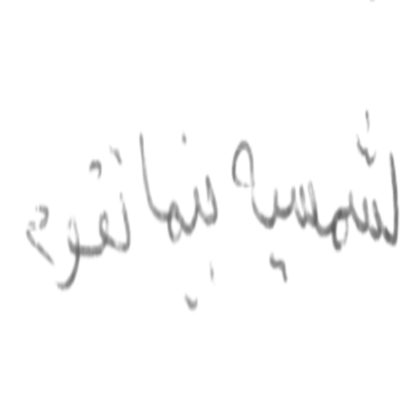 لشمسية بينما تقوم